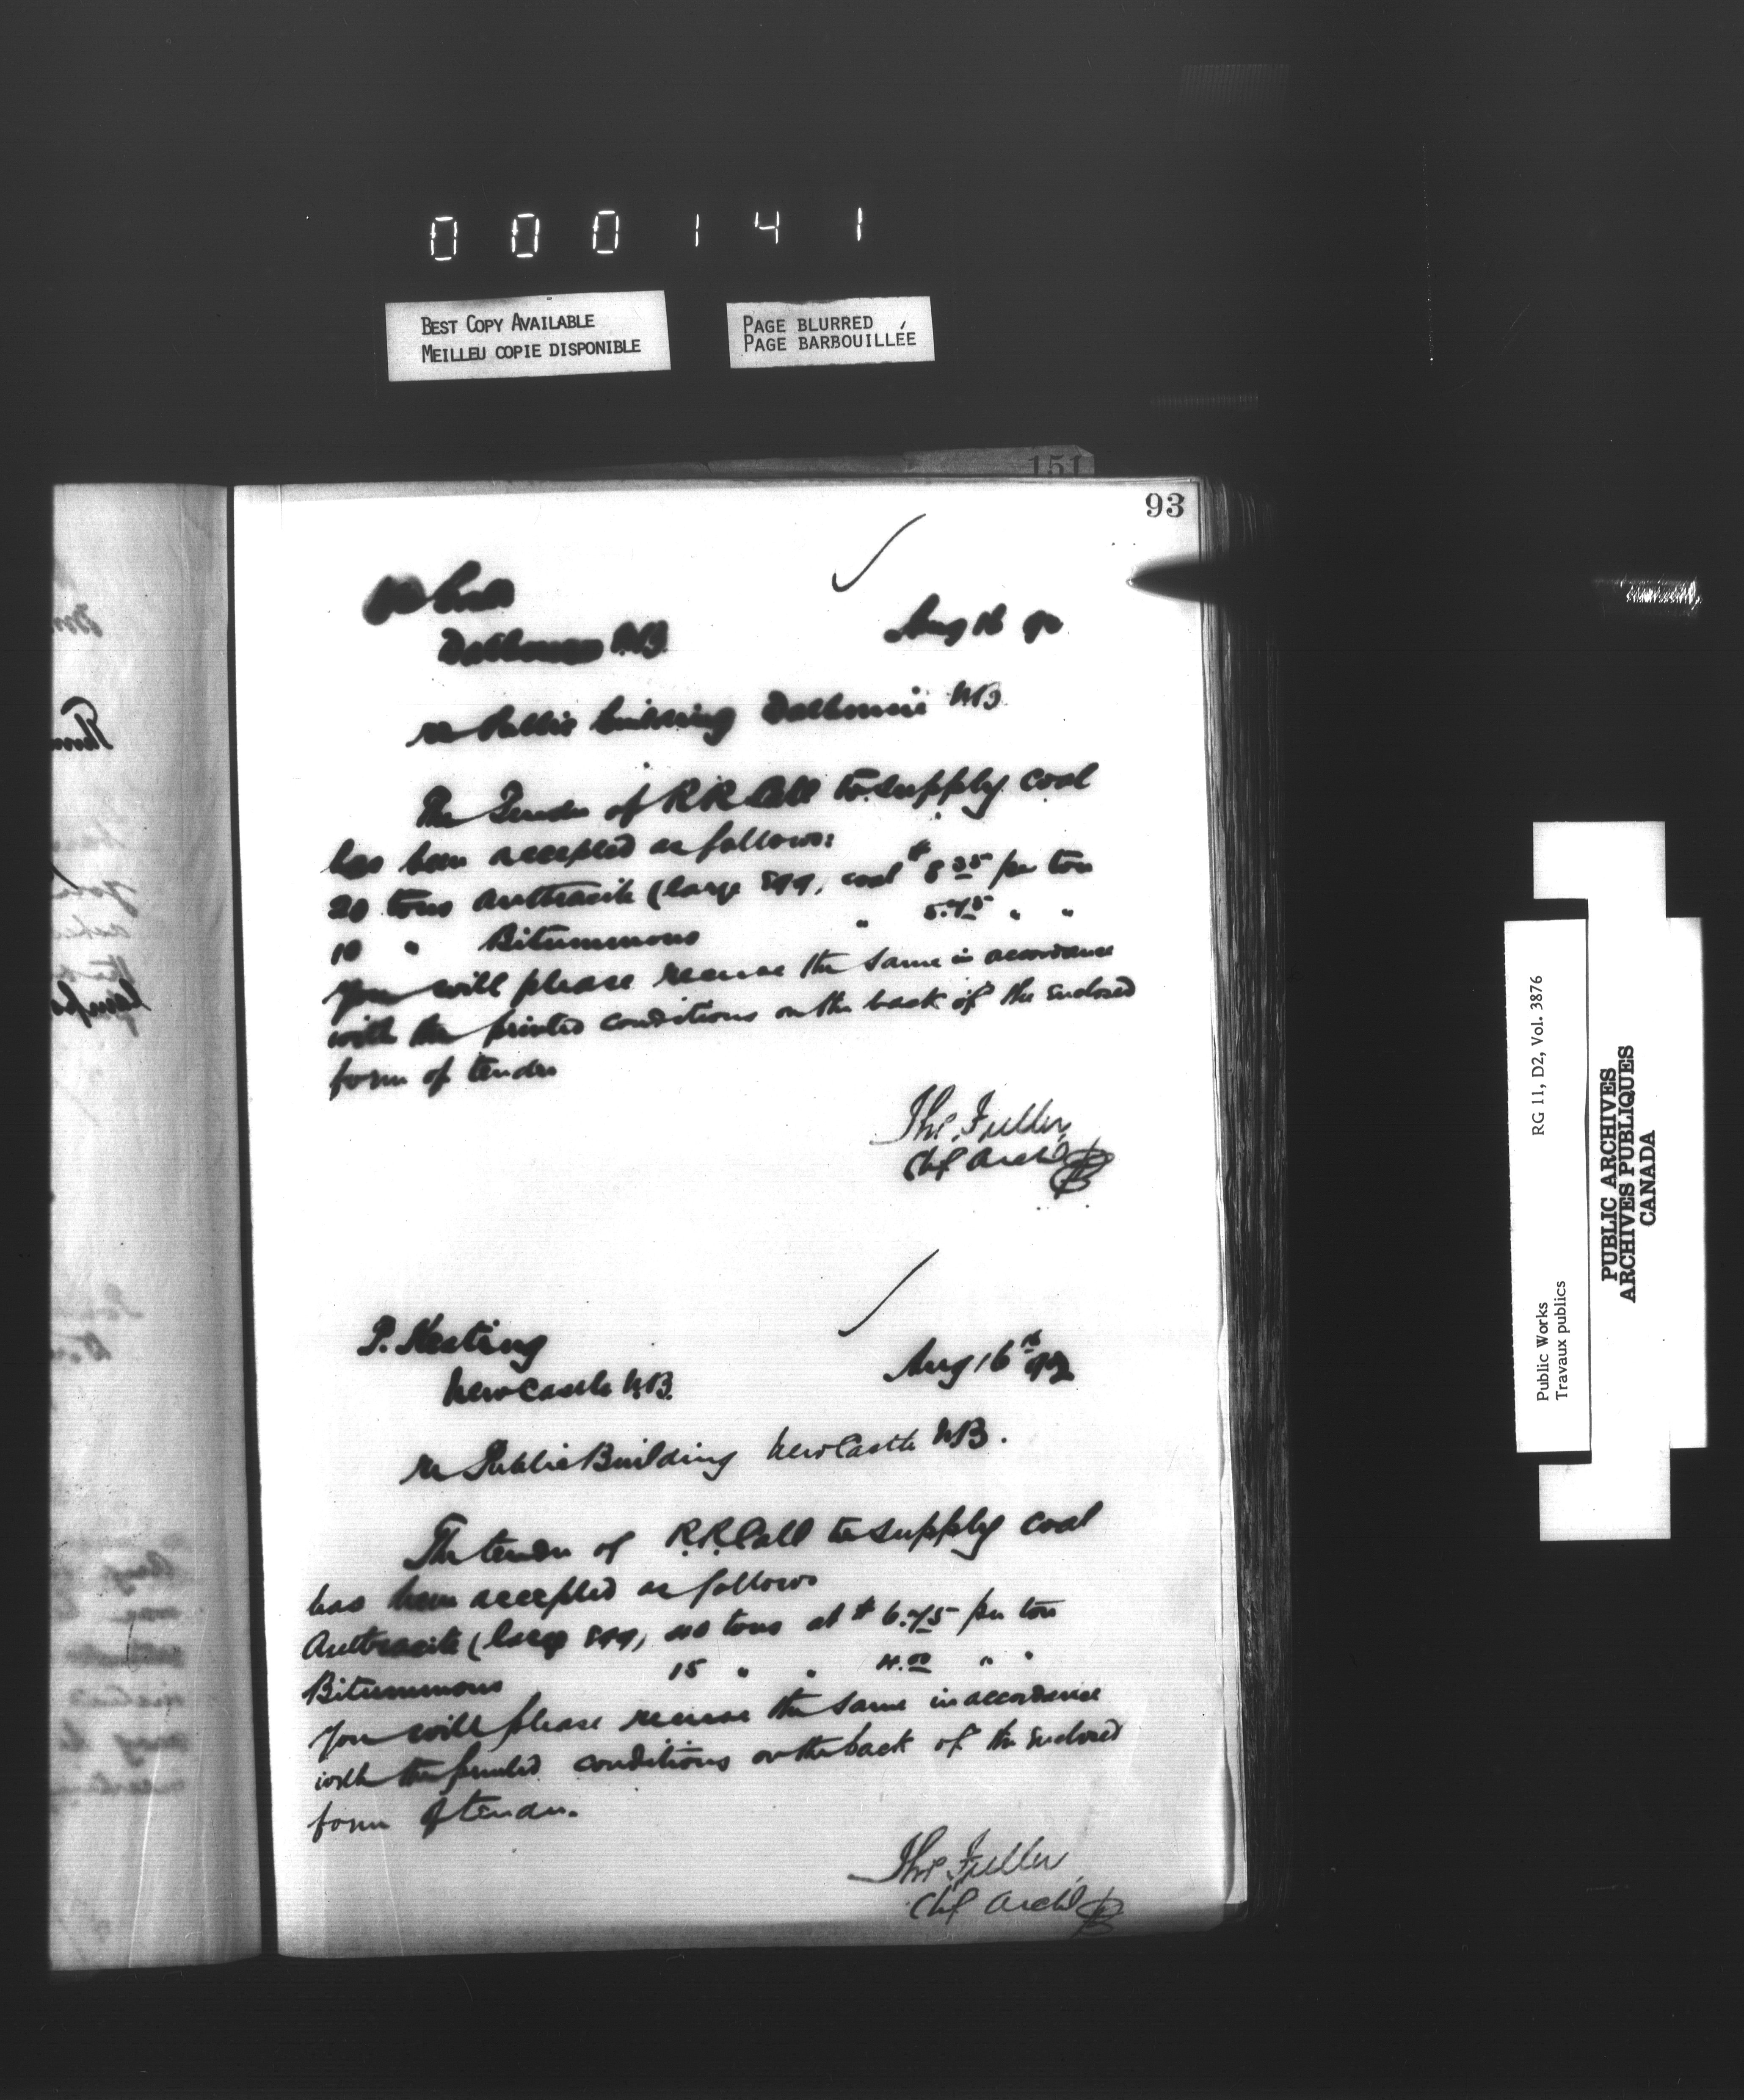 000141
BEST COPY AVAILABLE
MEILLEU COPIE DISPONIBLE
PAGE BLURRED
PAGE BARBOUILLÉE
151
93
Dalhousie N.B.
Aug 16 92
re Public building Dalhousie N.B.
The Tender of R R Call to supply coal
has been accepted as follows:
20 tons anthracite (large egg, coal $8 35 per ton
10 " Bituminous " 5.75 " "
You will please receive the same in accordance
with the printed conditions on the back of the enclosed
form of tender
Thos. Fuller,
Chf Archt
P. Keating
Newcastle N.B.
Aug 16th 92
re Public Building Newcastle N.B.
The tender of R.R. Call to supply coal
has been accepted as follows
Anthracite (large egg, tons at $6.75 per ton
Bituminous 15 " " 4.00 " "
You will please receive the same in accordance
with the printed conditions on the back of the enclosed
form of tender.
Thos. Fuller,
Chf Archt
Public Works
Travaux publics
RG 11, D2, Vol. 3876
PUBLIC ARCHIVES
ARCHIVES PUBLIQUES
CANADA